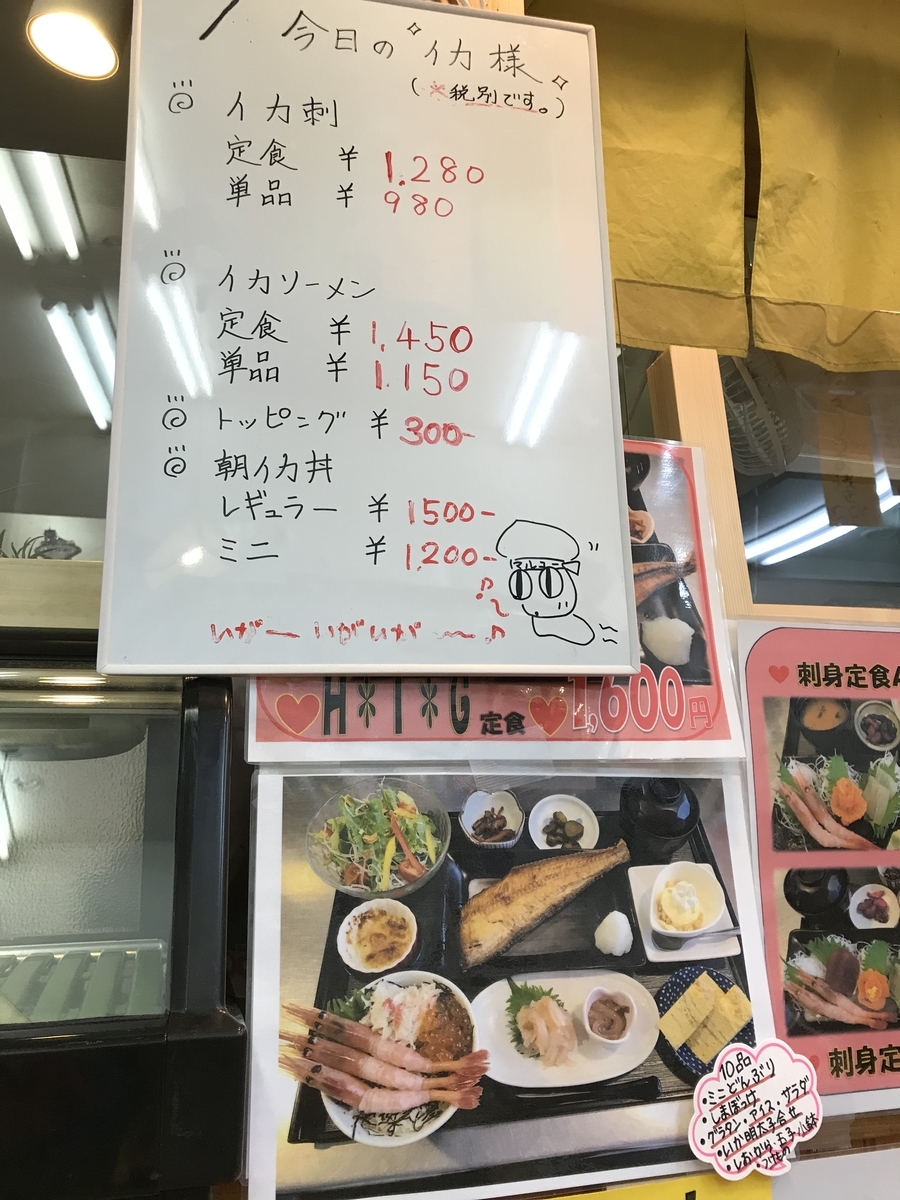 今日のイカ様
(※税別です。)
イカ刺
定食 ¥ 1.280
単品 ¥ 980
イカソーメン
定食 ¥ 1,450
単品 ¥ 1.150
トッピング ¥ 300-
朝イカ丼
レギュラー ¥ 1500-
ミニ ¥ 1,200-
マルユー
いが〜 いがいが 〜♪
H*I*G 定食 1,600円
刺身定食A
刺身定
10品
・ミニどんぶり
・しまほっけ
・グラタン・アイス・サラダ
・いか明太子合せ
・しおから・玉子・小鉢
・つけもの